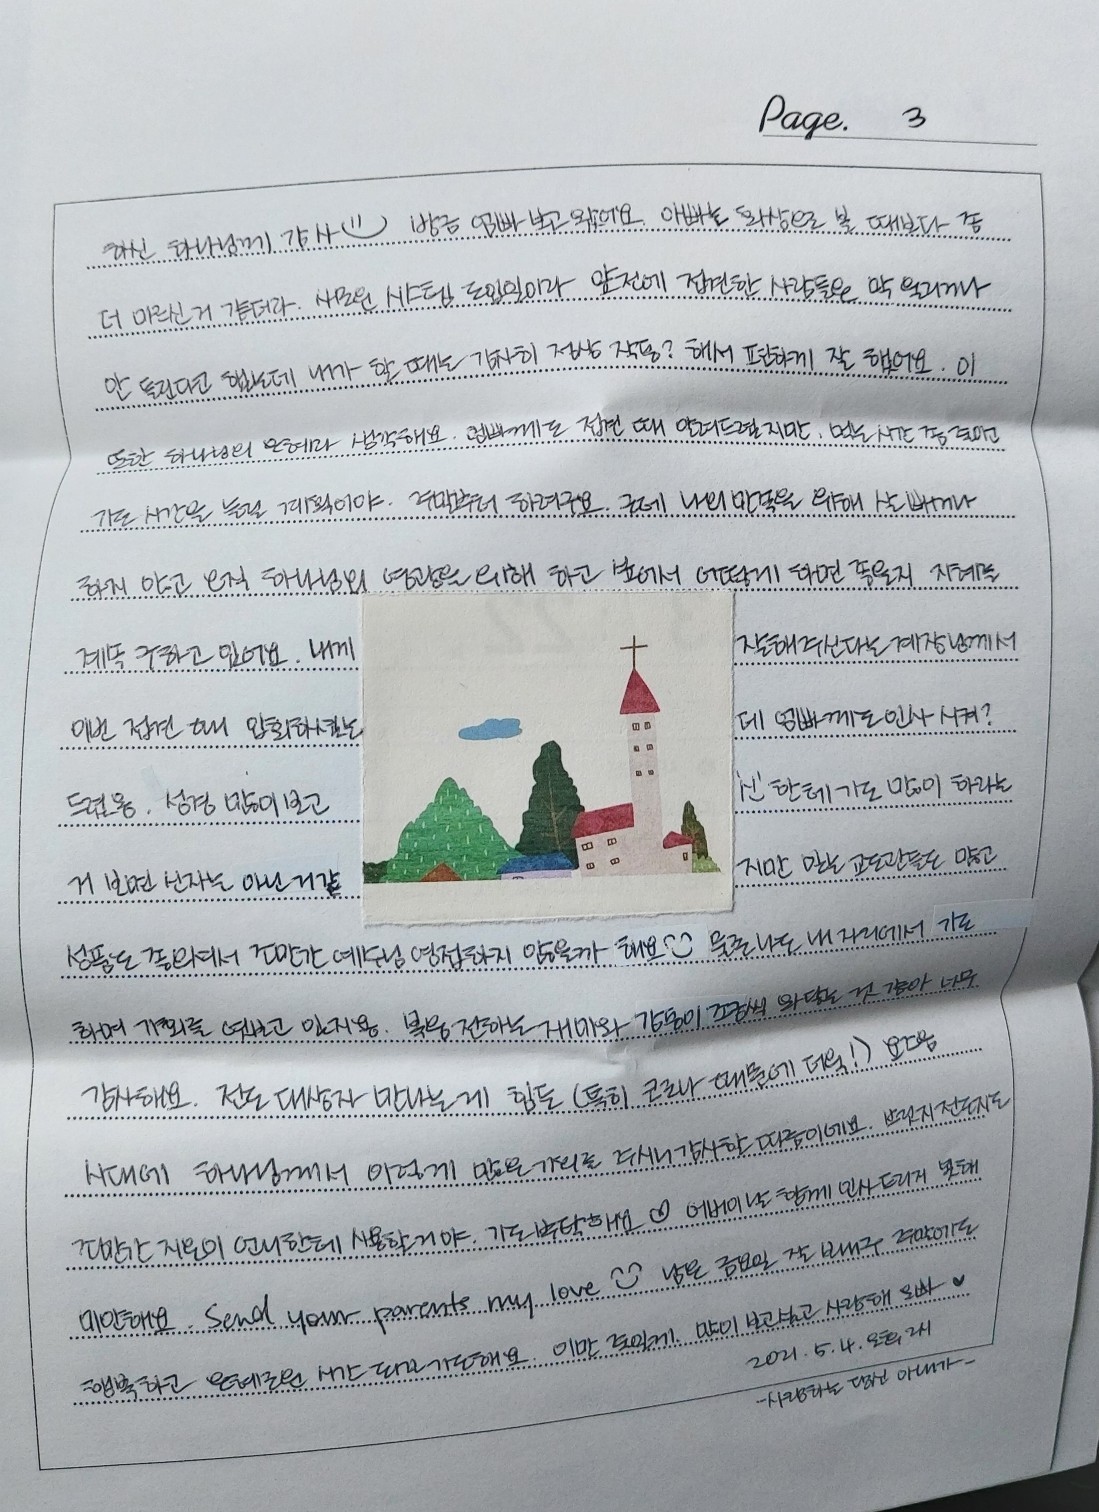 Page. 3
하신 하나님께 감사 방금 엄빠 보고 왔어요 아빠는 화상으로 볼 때보다 좀
더 마르신거 같더라. 새로운 시스템 도입일이라 앞전에 접견한 사람들은 막 울리거나
안 들린다고 했는데 내가 할 때는 감사히 정상 작동? 해서 편하게 잘 했어요. 이
또한 하나님의 은혜라 생각해요. 엄빠께도 접견 때 알려드렸지만, 먹는 시간 좀 줄이고
기도 시간을 늘릴 계획이야. 주말부터 하려구요. 근데 나의 만족을 위해 살 빼거나
하지 않고 오직 하나님의 영광을 위해 하고 분에서 어떻게 하면 좋을지 지혜를
계속 구하고 있어요. 내게 잘해주신다는 계장님께서
이번 접견 때 입회하셨는데 엄빠께도 인사 시켜?
드렸용. 성경 많이 보고 신한테 기도 많이 하라는
거 보면 신자는 아닌거같지만 아는 교도관들도 많고
성품도 좋아여서 조만간 예수님 영접하지 않을까 해요 물론 나도 내 자리에서 기도
하며 기회를 엿보고 있지용. 복음 전하는 재미와 감동이 조금씩 와닿는 것 같아 너무
감사해요. 전도 대상자 만나는게 힘든 (특히 코로나 때문에 더욱!) 요즘
시대에 하나님께서 이렇게 많은 기회를 주시니 감사할 따름이네요. 전도지도
조만간 지은이 언니한테 사용할거야. 기도부탁해요 어버이날 함께 인사드리지 못해
미안해요. Send your parents my love 남은 금요일 잘 보내구 주말에도
행복하고 은혜로운 시간 되길 기도해요. 이만 줄일게. 많이 보고싶고 사랑해 오빠
2021. 5. 4. 오후 2시
-사랑하는 당신 아내가-